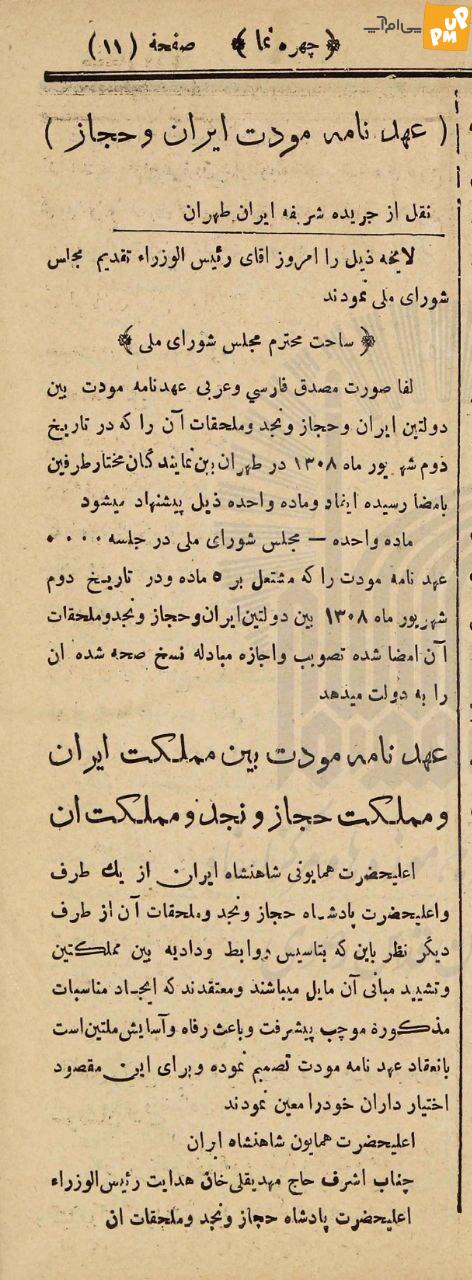 پی‌ام‌آپ
PMUP
﴿ چهره نما ﴾ صفحهٔ (۱۱)
( عهد نامه مودت ایران و حجاز )
نقل از جریده شریفه ایران طهران
لایحه ذیل را امروز اقای رئیس الوزراء تقدیم مجلس
شورای ملی نمودند
﴿ ساحت محترم مجلس شورای ملی ﴾
لفا صورت مصدق فارسي وعربی عهدنامه مودت بین
دولتین ایران وحجاز ونجد وملحقات آن را که در تاریخ
دوم شهریور ماه ۱۳۰۸ در طهران بین نمایندگان مختار طرفین
بامضا رسیده ایفاد وماده واحده ذیل پیشنهاد میشود
ماده واحده — مجلس شورای ملی در جلسه ۰۰۰۰
عهد نامه مودت را که مشتمل بر ۵ ماده ودر تاریخ دوم
شهریور ماه ۱۳۰۸ بین دولتین ایران وحجاز ونجد وملحقات
آن امضا شده تصویب واجازه مبادله نسخ صحه شده ان
را به دولت میدهد
عهد نامه مودت بین مملکت ایران
و مملکت حجاز و نجد و مملکت ان
اعلیحضرت همایونی شاهنشاه ایران از یك طرف
واعلیحضرت پادشاه حجاز ونجد وملحقات آن از طرف
دیگر نظر باین که بتاسیس روابط ودادیه بین مملکتین
وتشیید مبانی آن مایل میباشند ومعتقدند که ایجاد مناسبات
مذکورة موجب پیشرفت وباعث رفاه وآسایش ملتین است
بانعقاد عهد نامه مودت تصمیم نموده وبرای این مقصود
اختیار داران خودرا معین نمودند
اعلیحضرت همایون شاهنشاه ایران
جناب اشرف حاج مهدیقلی خان هدایت رئیس الوزراء
اعلیحضرت پادشاه حجاز ونجد وملحقات ان